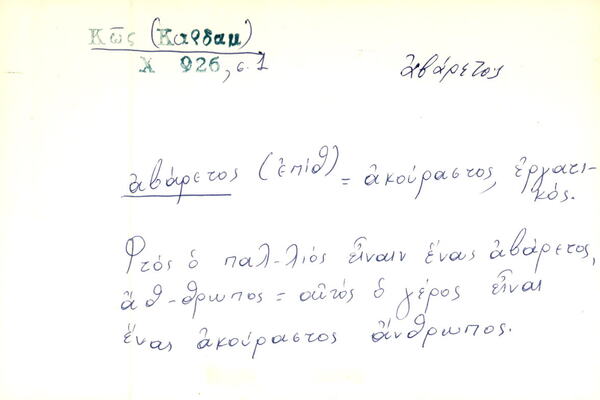 Κῶς (Καρδαμ)
Χ 926, σ.1
ἀβάρετος
ἀβάρετος (ἐπίθ) = ἀκούραστος, ἐργατι-
κός.
Φτός ὁ παλ-λιός εἶναιν ἕνας ἀβάρετος,
ἄθ-θρωπος = αὐτός ὁ γέρος εἶναι
ἕνας ἀκούραστος ἄνθρωπος.